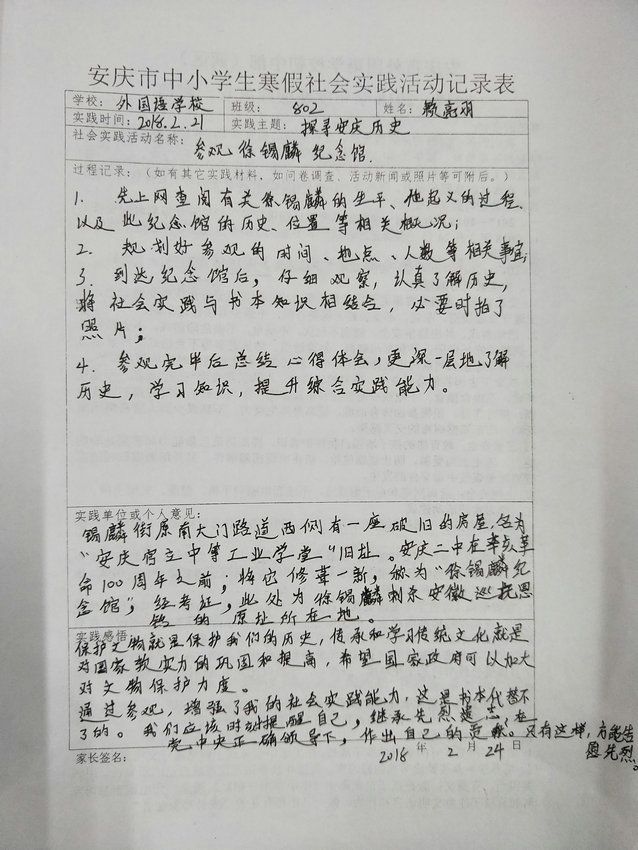 安庆市中小学生寒假社会实践活动记录表
学校： 外国语学校 班级： 802 姓名：
实践时间：2018.2.21 实践主题： 探寻安庆历史
社会实践活动名称：
参观徐锡麟纪念馆.
过程记录：（如有其它实践材料，如问卷调查、活动新闻或照片等可附后。）
1. 先上网查阅有关徐锡麟的生平、他起义的过程、
以及此纪念馆的历史、位置等相关概况；
2. 规划好参观的时间、地点、人数等相关事宜；
3. 到达纪念馆后，仔细观察，认真了解历史，
将社会实践与书本知识相结合，必要时拍了
照片；
4. 参观完毕后总结心得体会，更深一层地了解
历史，学习知识，提升综合实践能力。
实践单位或个人意见：
锡麟街原南大门路道西侧有一座破旧的房屋，名为
“安庆 立中等工业学堂”旧址。安庆二中在辛亥革
命100周年之前；将它修葺一新，称为“徐锡麟纪
念馆”，经考证，此处为徐锡麟刺杀安徽巡抚恩
铭的原址所在地。
实践感悟：
保护文物就是保护我们的历史，传承和学习传统文化就是
对国家软实力的巩固和提高，希望国家政府可以加大
对文物保护力度。
通过参观，增强了我的社会实践能力，这是书本代替不
了的。我们应该时刻提醒自己，继承先烈遗志，在
党中央正确领导下，作出自己的贡献。只有这样，方能告
慰先烈。
家长签名： 2018 年 2 月 24 日